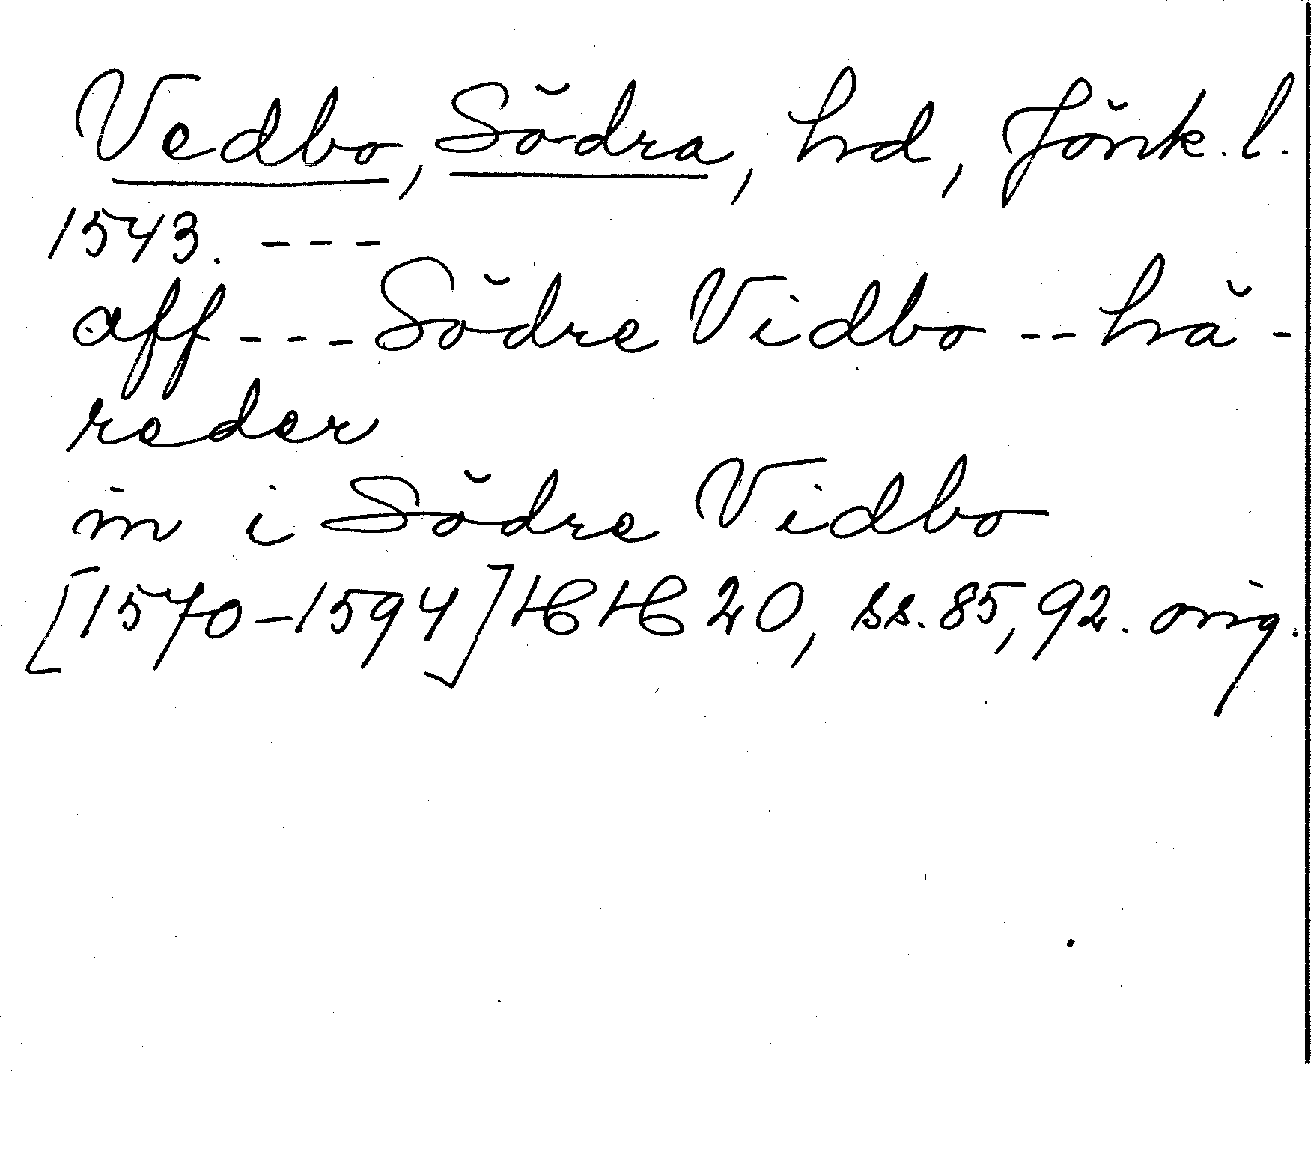 Vedbo, Södra, hd, Jönk. l.
1543. ---
aff --- Södre Vidbo -- hä-
reder
in i Södre Vidbo
[1570-1594] HH 20, ss. 85, 92. orig.